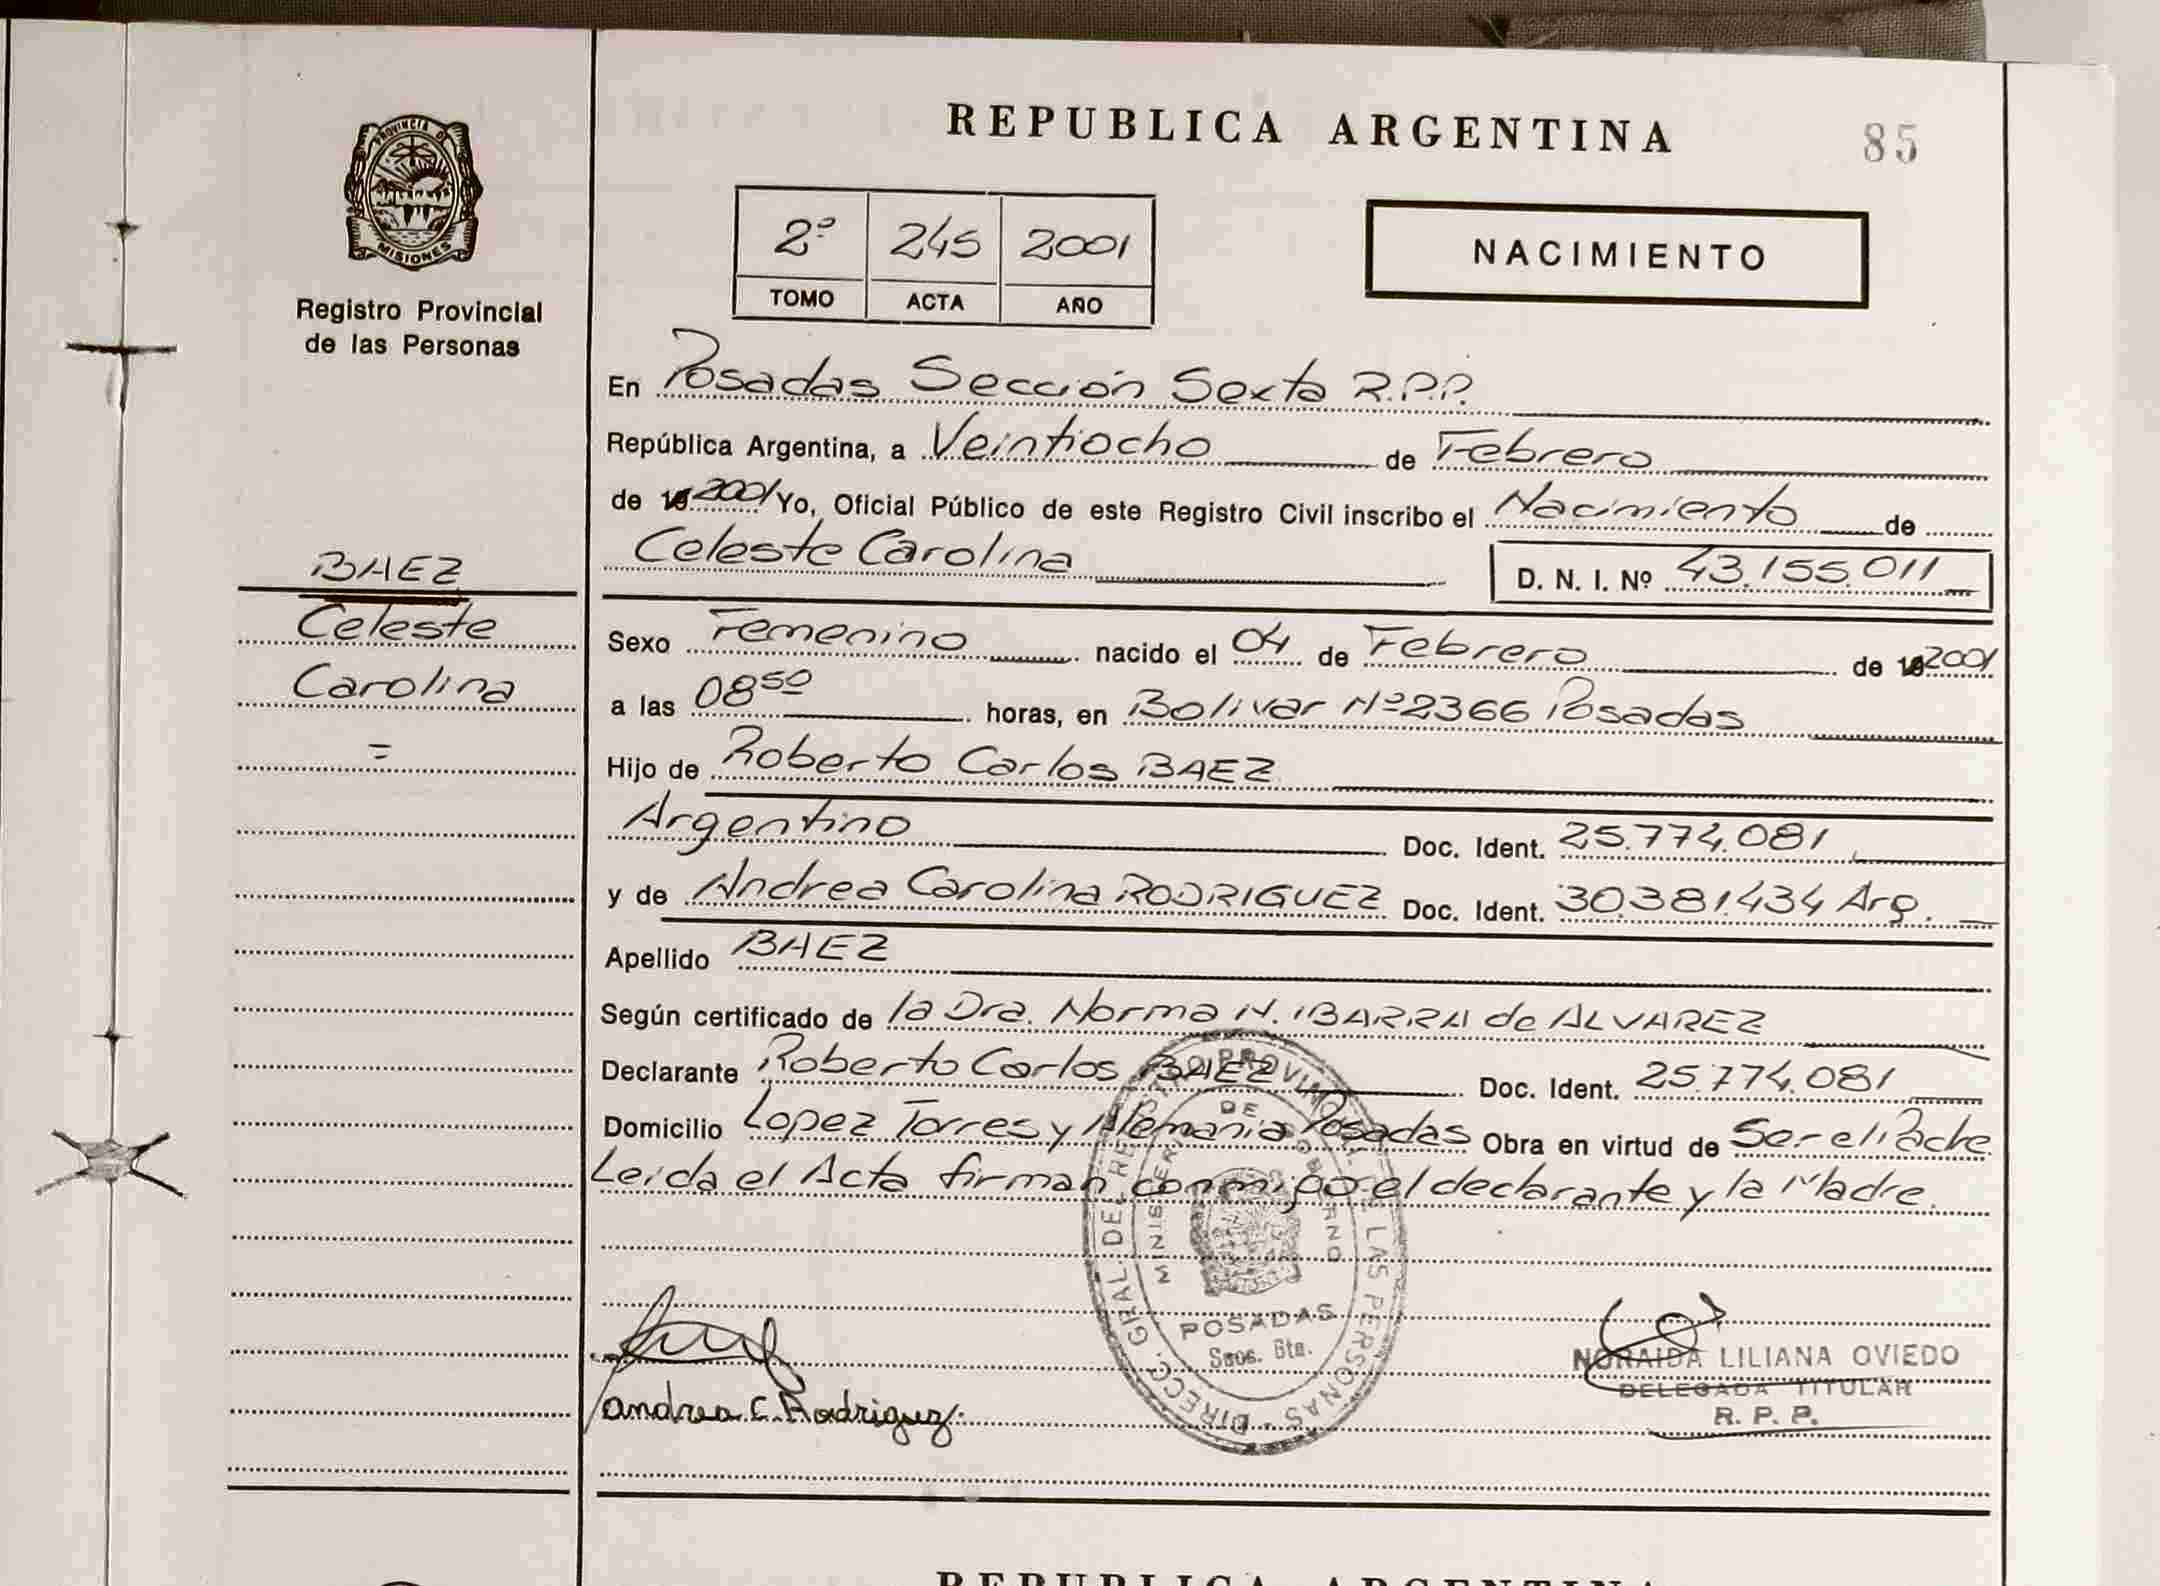 PROVINCIA DE
MISIONES
Registro Provincial
de las Personas
BAEZ
Celeste
Carolina
=
REPUBLICA ARGENTINA
85
2º 245 2001
TOMO ACTA AÑO
NACIMIENTO
En Posadas Sección Sexta R.P.P.
República Argentina, a Veintiocho de Febrero
de 2001 Yo, Oficial Público de este Registro Civil inscribo el Nacimiento de
Celeste Carolina D. N. I. Nº 43.155.011
Sexo Femenino nacido el 04 de Febrero de 2001
a las 08⁵⁰ horas, en Bolivar Nº 2366 Posadas
Hijo de Roberto Carlos BAEZ
Argentino Doc. Ident. 25.774.081
y de Andrea Carolina RODRIGUEZ Doc. Ident. 30.381.434 Arg.
Apellido BAEZ
Según certificado de la Dra. Norma N. IBARRA de ALVAREZ
Declarante Roberto Carlos BAEZ Doc. Ident. 25.774.081
Domicilio Lopez Torres y Alemania Posadas Obra en virtud de Ser el Padre
Leida el Acta firman conmigo el declarante y la Madre.
DIRECC. GRAL. DEL REGISTRO PROVINCIAL DE LAS PERSONAS
MINISTERIO DE GOBIERNO
POSADAS
Secc. 6ta.
Andrea C. Rodriguez.
NORAIDA LILIANA OVIEDO
DELEGADA TITULAR
R. P. P.
REPUBLICA ARGENTINA